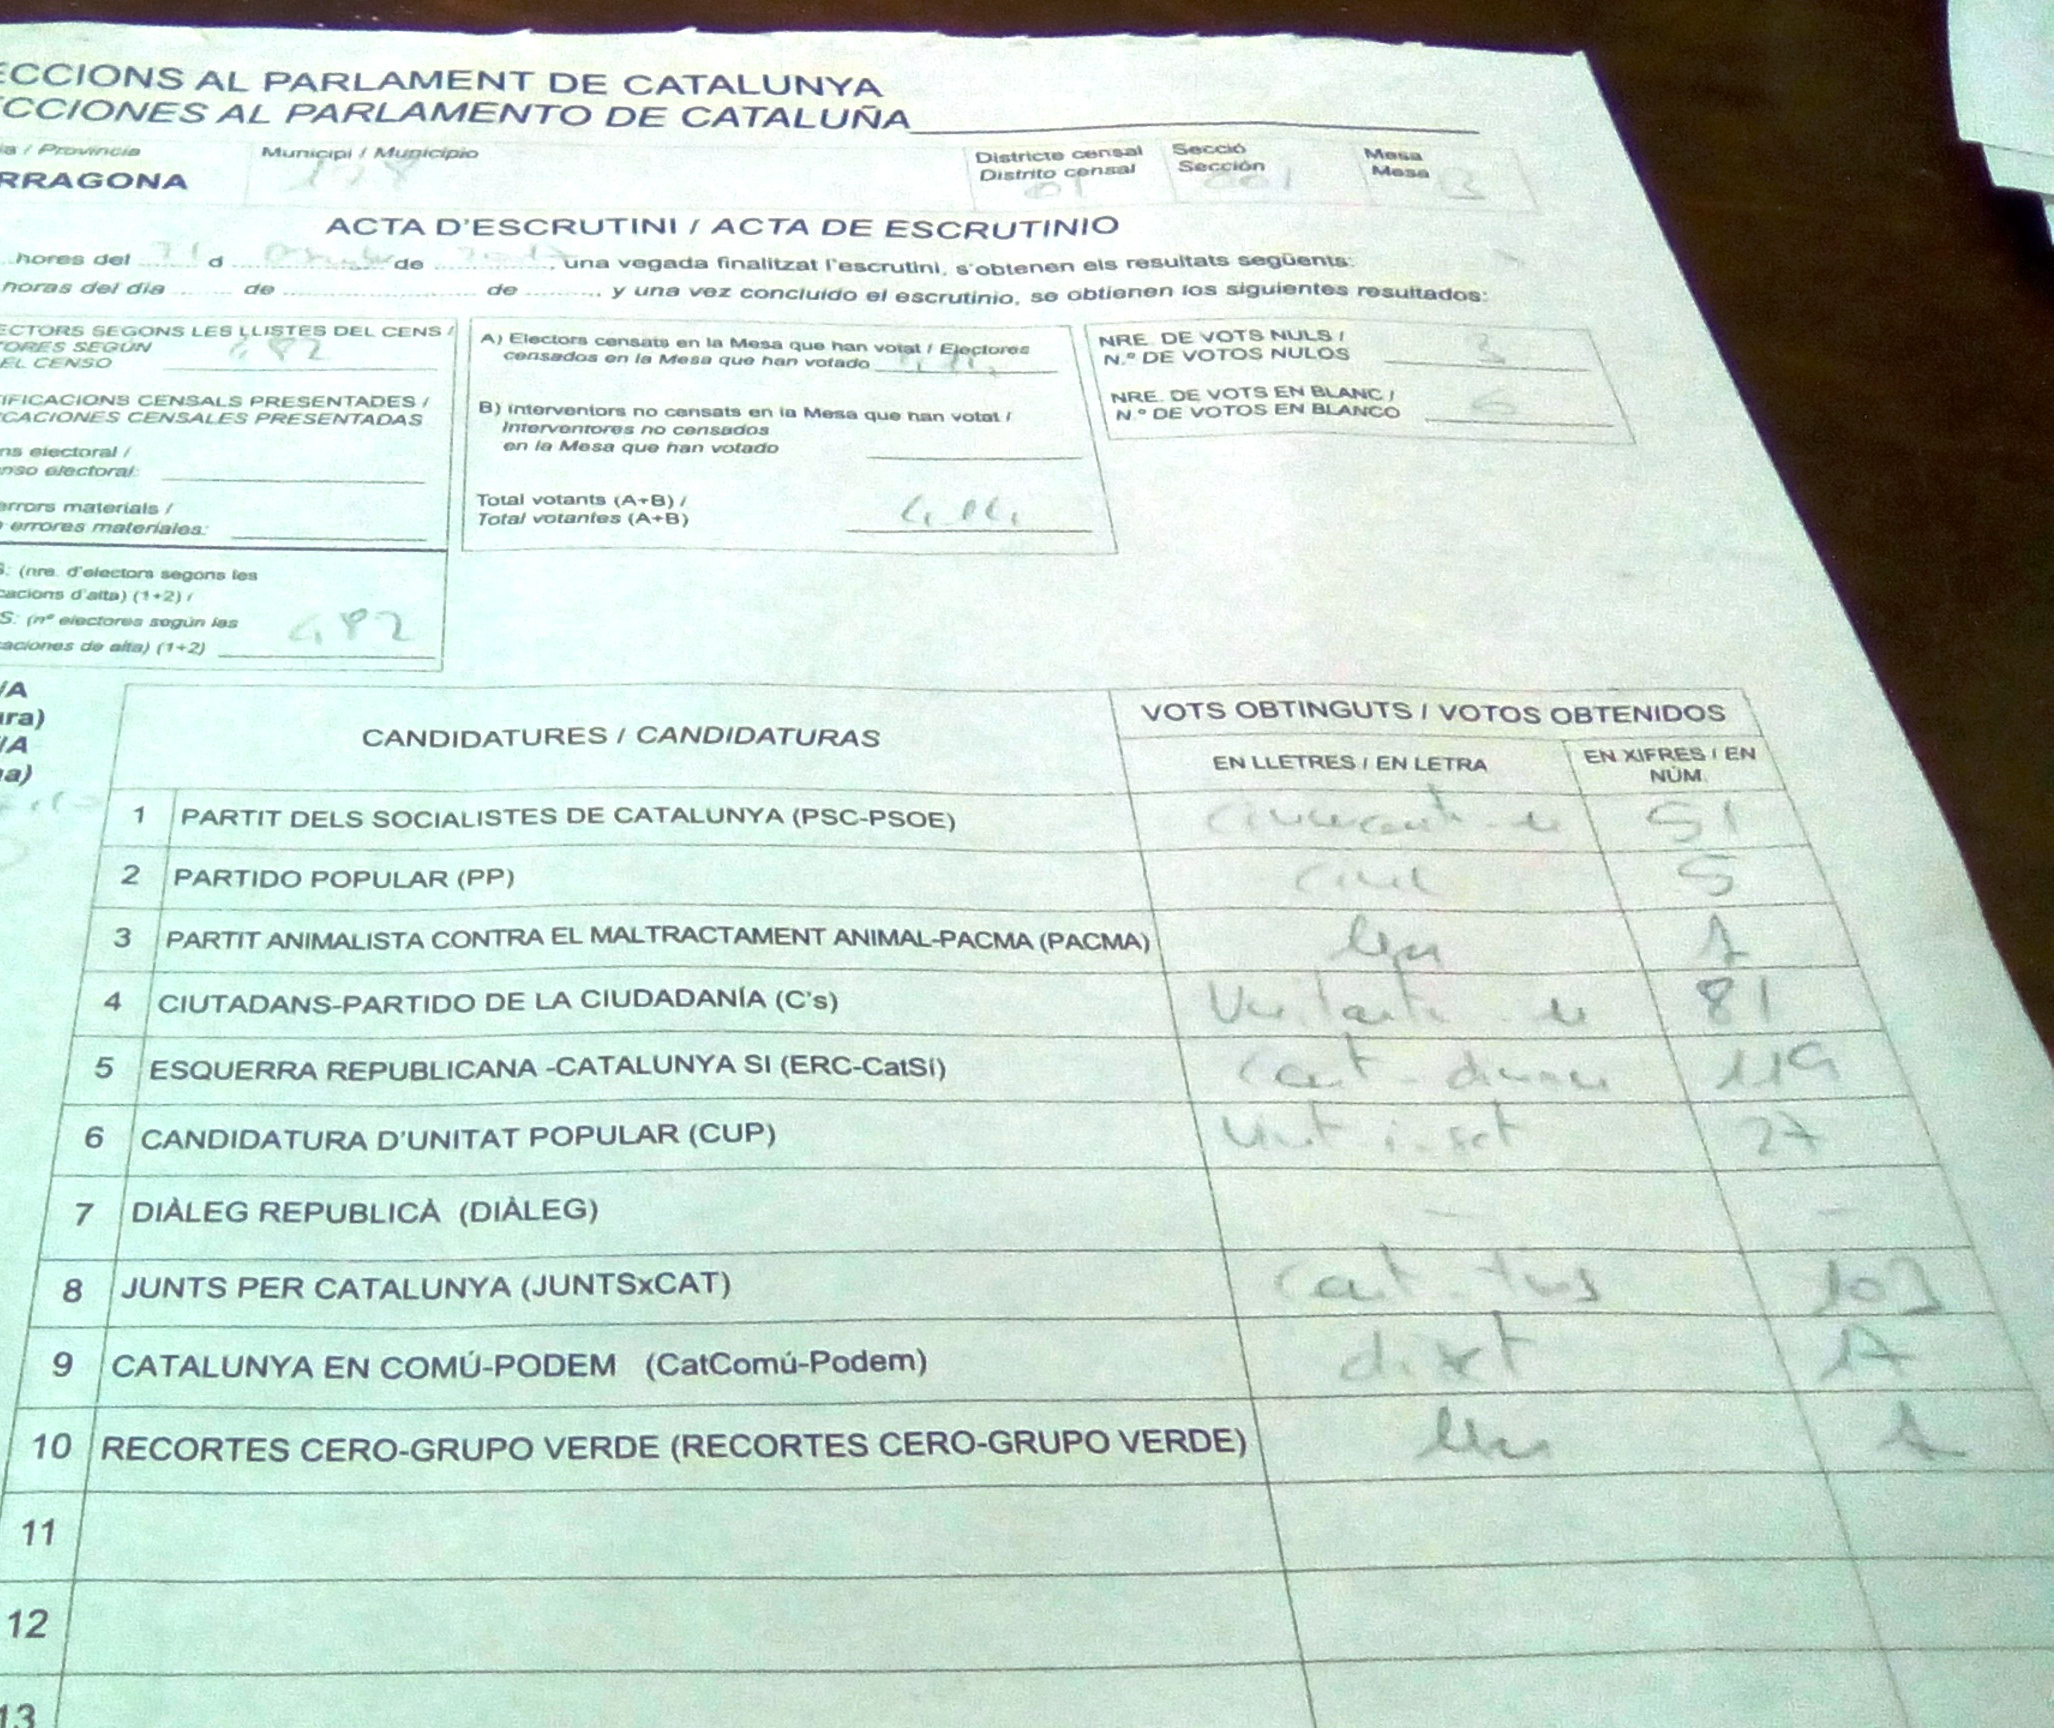 ECCIONS AL PARLAMENT DE CATALUNYA
CCIONES AL PARLAMENTO DE CATALUÑA
ia / Provincia
RRAGONA
Municipi / Municipio
Districte censal
Distrito censal
01
Secció
Sección
001
Mesa
Mesa
B
ACTA D'ESCRUTINI / ACTA DE ESCRUTINIO
hores del 21 d de 2017, una vegada finalitzat l'escrutini, s'obtenen els resultats següents:
horas del día de de , y una vez concluido el escrutinio, se obtienen los siguientes resultados:
ECTORS SEGONS LES LLISTES DEL CENS /
TORES SEGÚN
EL CENSO
IFICACIONS CENSALS PRESENTADES /
CACIONES CENSALES PRESENTADAS
ns electoral /
nso electoral:
errors materials /
errores materiales:
S: (nre. d'electors segons les
cacions d'alta) (1+2) /
S: (nº electores según las
caciones de alta) (1+2)
A) Electors censats en la Mesa que han votat / Electores
censados en la Mesa que han votado
B) Interventors no censats en la Mesa que han votat /
Interventores no censados
en la Mesa que han votado
Total votants (A+B) /
Total votantes (A+B)
NRE. DE VOTS NULS /
N.º DE VOTOS NULOS 3
NRE. DE VOTS EN BLANC /
N.º DE VOTOS EN BLANCO 6
ÍA
ura)
ÍA
a)
CANDIDATURES / CANDIDATURAS
VOTS OBTINGUTS / VOTOS OBTENIDOS
EN LLETRES / EN LETRA
EN XIFRES / EN
NÚM.
1 PARTIT DELS SOCIALISTES DE CATALUNYA (PSC-PSOE) 51
2 PARTIDO POPULAR (PP) cinc 5
3 PARTIT ANIMALISTA CONTRA EL MALTRACTAMENT ANIMAL-PACMA (PACMA) 1
4 CIUTADANS-PARTIDO DE LA CIUDADANÍA (C's) 81
5 ESQUERRA REPUBLICANA -CATALUNYA SI (ERC-CatSí) cent-dinou 119
6 CANDIDATURA D'UNITAT POPULAR (CUP) Vint-i-set 27
7 DIÀLEG REPUBLICÀ (DIÀLEG) - -
8 JUNTS PER CATALUNYA (JUNTSxCAT) cent-tres 103
9 CATALUNYA EN COMÚ-PODEM (CatComú-Podem) 17
10 RECORTES CERO-GRUPO VERDE (RECORTES CERO-GRUPO VERDE) 1
11
12
13